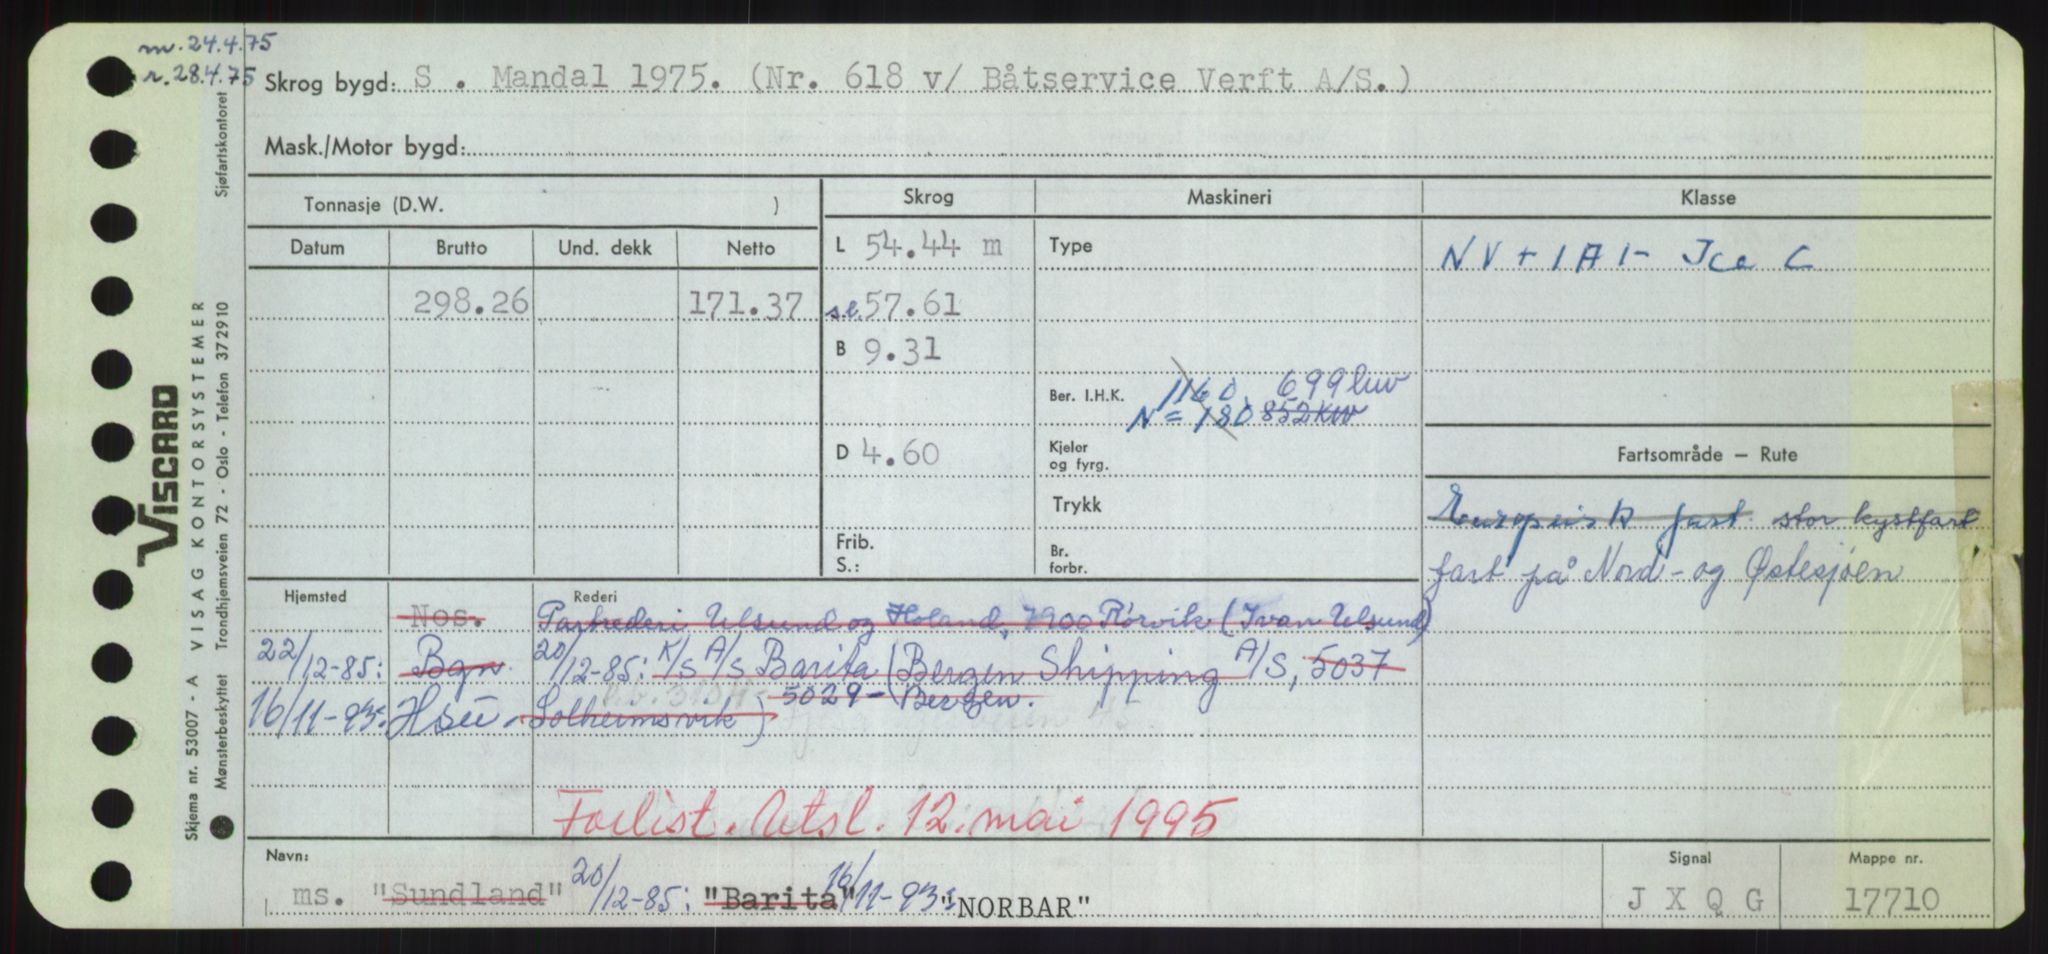 m. 24.4.75
r. 28.4.75
Skrog bygd: S . Mandal 1975. (Nr. 618 v/ Båtservice Verft A/S.)
Mask./Motor bygd:
Tonnasje (D.W. )
Skrog
Maskineri
Klasse
Datum Brutto Und. dekk Netto
L 54.44 m
Type
NV + 1A1- Ice C
298.26 171.37
s.l. 57.61
B 9.31
Ber. I.H.K. 1160 699 kw
N = 180 852 kw
D 4.60
Kjeler
og fyrg.
Fartsområde – Rute
Trykk
Europeisk fart. stor kystfart
Frib.
S.:
Br.
forbr.
fart på Nord- og Østesjøen
Hjemsted Rederi
Nos. Partrederi Ulsund og Holand, 7900 Rørvik (Ivan Ulsund)
22/12-85: Bgn. 20/12-85: K/S A/S Barita (Bergen Shipping A/S, 5037
5029 - Bergen.
16/11-93: Hsu. Solheimsvik)
Forlist. Utsl. 12. mai 1995
Navn:
ms. "Sundland" 20/12-85: "Barita" 16/11-93: "NORBAR"
Signal
J X Q G
Mappe nr.
17710
Sjøfartskontoret
VISCARD
Skjema nr. 53007 - A VISAG KONTORSYSTEMER
Mønsterbeskyttet Trondhjemsveien 72 - Oslo - Telefon 372910